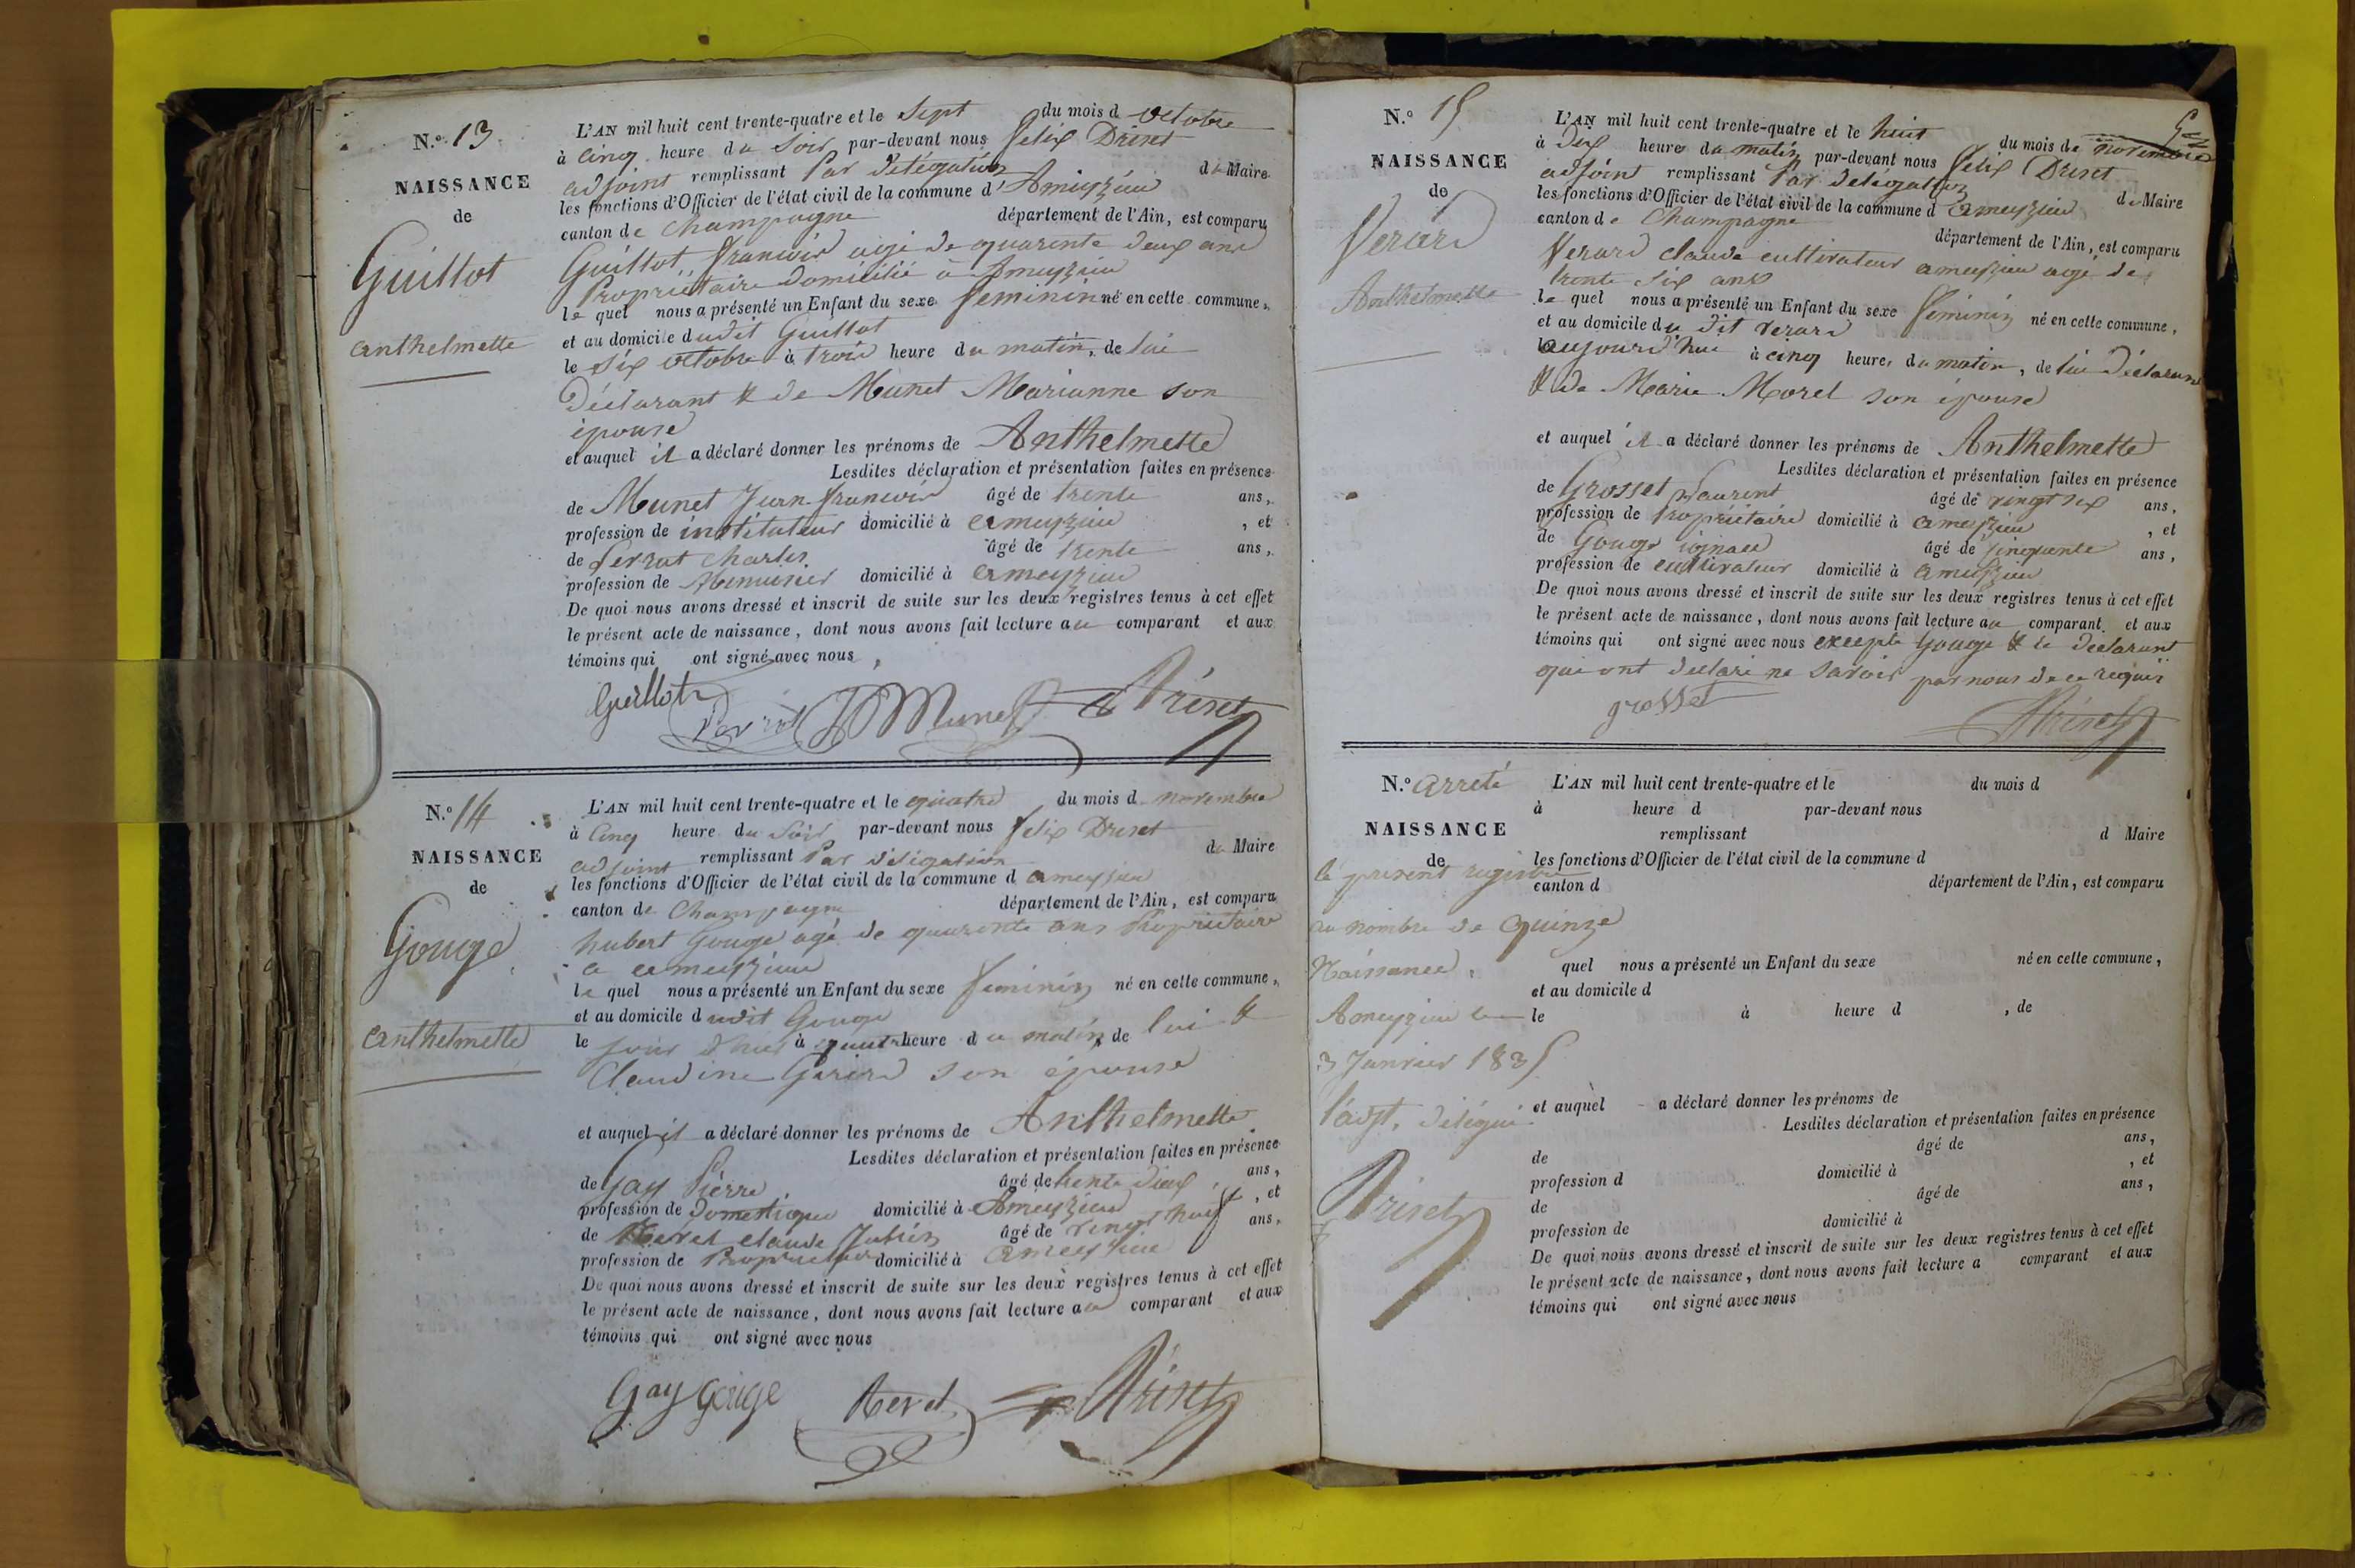 N.º 13
NAISSANCE
de
Guillot
anthelmette
L'AN mil huit cent trente-quatre et le Sept du mois d octobre
à Cinq heure du Soir par-devant nous felix Driset
adjoint remplissant Par delégation du Maire
les fonctions d'Officier de l'état civil de la commune d'Ameyzieu
canton de Champagne département de l'Ain, est comparu
Guillot francois agé de quarente deux ans
Propriétaire domicilié à Ameyzieu
le quel nous a présenté un Enfant du sexe feminin né en cette commune,
et au domicile dudit Guillot
le six octobre à trois heure du matin, de lui
Déclarant & de Munet Marianne son
épouse
et auquel il a déclaré donner les prénoms de Anthelmette
Lesdites déclaration et présentation faites en présence
de Munet Jean francois âgé de trente ans,
profession de instituteur domicilié à ameyzieu , et
de Perrat Charles âgé de trente ans,
profession de Menusier domicilié à ameyzieu
De quoi nous avons dressé et inscrit de suite sur les deux registres tenus à cet effet
le présent acte de naissance, dont nous avons fait lecture au comparant et aux
témoins qui ont signé avec nous,
Guillot Perrat Munet Driset
N.º 14
NAISSANCE
de
Gouge
anthelmette
L'AN mil huit cent trente-quatre et le quatre du mois d novembre
à Cinq heure du Soir par-devant nous felix Driset
adjoint remplissant Par délégation du Maire
les fonctions d'Officier de l'état civil de la commune d ameyzieu
canton de Champagne département de l'Ain, est comparu
hubert Gouge agé de quarente ans Propriétaire
a ameyzieu
le quel nous a présenté un Enfant du sexe feminin né en cette commune,
et au domicile dudit Gouge
le jour d'hui à heure du matin de lui &
Claudine son épouse
et auquel il a déclaré donner les prénoms de Anthelmette
Lesdites déclaration et présentation faites en présence
de Gay Pierre âgé de trente deux ans,
profession de domestique domicilié à Ameyzieu , et
de claude âgé de vingt huit ans,
profession de Propriétaire domicilié à ameyzieu
De quoi nous avons dressé et inscrit de suite sur les deux registres tenus à cet effet
le présent acte de naissance, dont nous avons fait lecture au comparant et aux
témoins qui ont signé avec nous
Gay Gouge Driset
N.º 15
NAISSANCE
de
Verard
Anthelmette
L'AN mil huit cent trente-quatre et le huit du mois de novembre
à dix heures du matin par-devant nous felix Driset
adjoint remplissant Par delégation du Maire
les fonctions d'Officier de l'état civil de la commune d ameyzieu
canton de Champagne département de l'Ain, est comparu
Verard claude cultivateur ameyzieu agé de
trente six ans
le quel nous a présenté un Enfant du sexe feminin né en cette commune,
et au domicile du dit verard
aujourd'hui à cinq heures du matin, de lui déclarant
& de Marie Morel son épouse
et auquel il a déclaré donner les prénoms de Anthelmette
Lesdites déclaration et présentation faites en présence
de Grosset Laurent âgé de vingt six ans,
profession de propriétaire domicilié à ameyzieu , et
de Gouge ignace âgé de cinquente ans,
profession de cultivateur domicilié à ameyzieu
De quoi nous avons dressé et inscrit de suite sur les deux registres tenus à cet effet
le présent acte de naissance, dont nous avons fait lecture au comparant et aux
témoins qui ont signé avec nous excepté Gouge & le déclarant
qui ont déclaré ne savoir par nous de ce requis
grosset Driset
N.º arreté
NAISSANCE
de
le présent registre
au nombre de quinze
Naissance,
Ameyzieu le
3 Janvier 1835
l'adjt. délégué
Driset
L'AN mil huit cent trente-quatre et le du mois d
à heure d par-devant nous
remplissant d Maire
les fonctions d'Officier de l'état civil de la commune d
canton d département de l'Ain, est comparu
quel nous a présenté un Enfant du sexe né en cette commune,
et au domicile d
le à heure d , de
et auquel a déclaré donner les prénoms de
Lesdites déclaration et présentation faites en présence
de âgé de ans,
profession d domicilié à , et
de âgé de ans,
profession de domicilié à
De quoi nous avons dressé et inscrit de suite sur les deux registres tenus à cet effet
le présent acte de naissance, dont nous avons fait lecture a comparant et aux
témoins qui ont signé avec nous